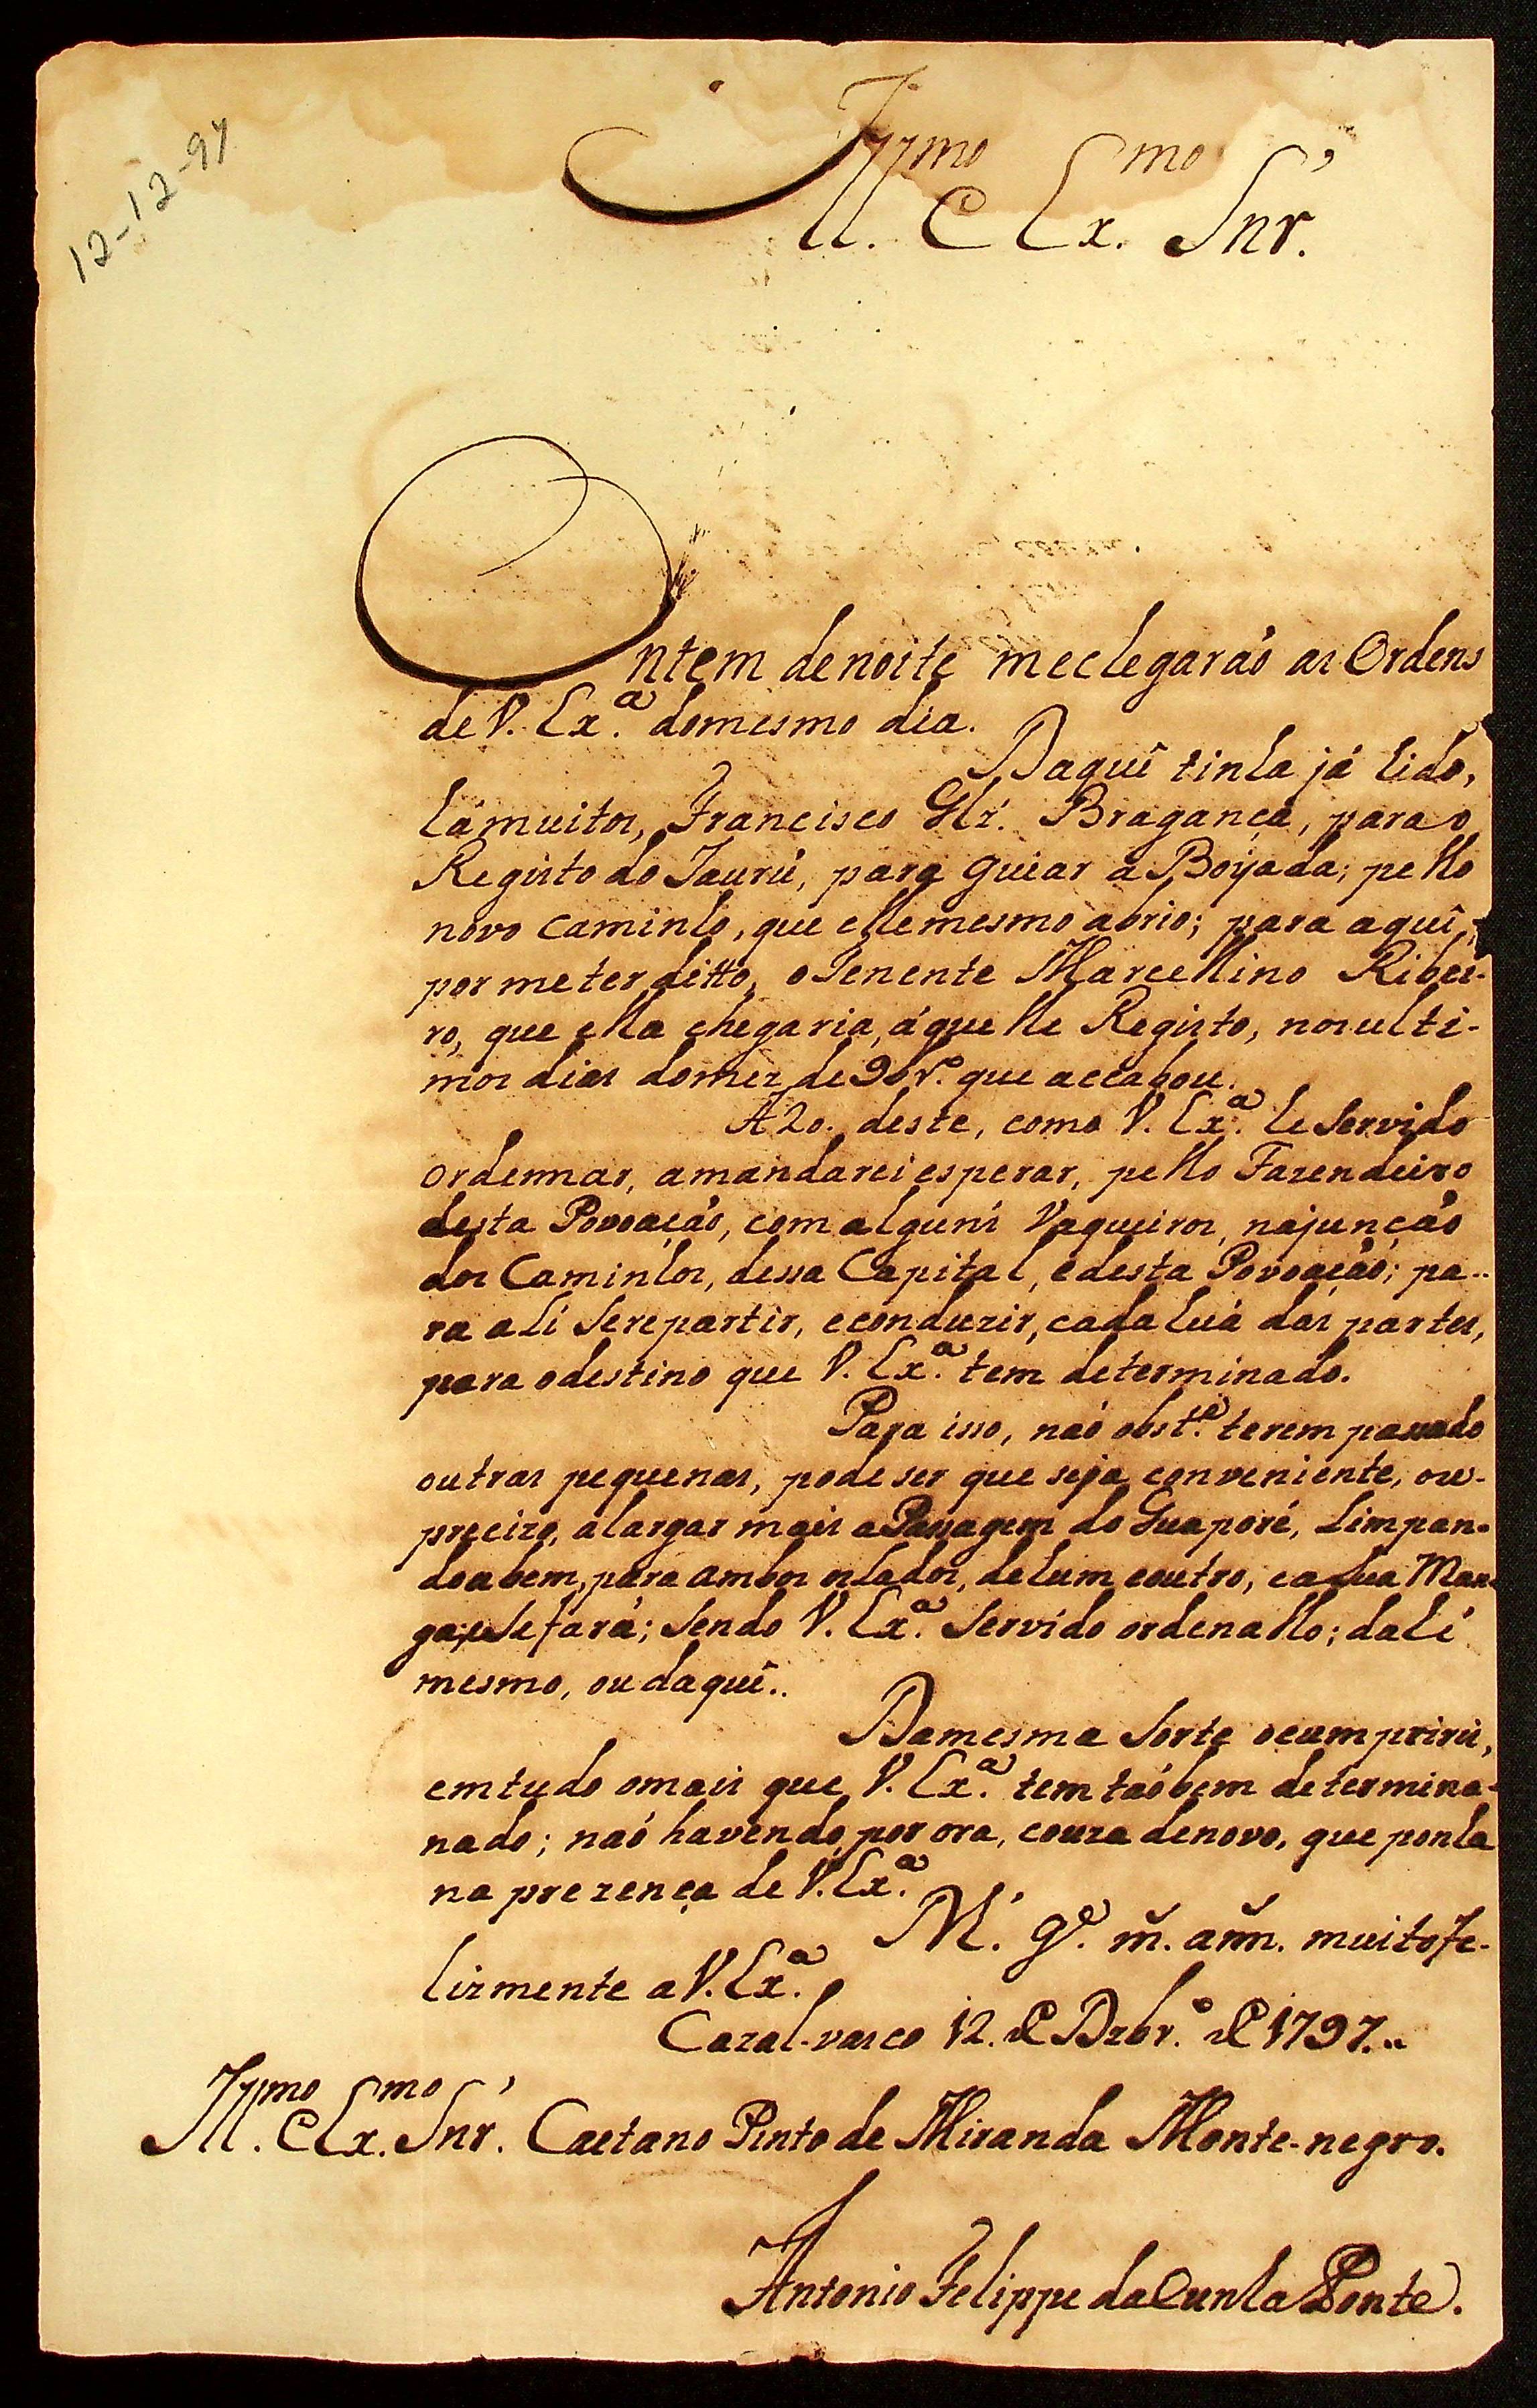 12-12-97
Ill.mo e Ex.mo Snr.
Ontem de noite me chegaraõ as Ordens
de V. Ex.a do mesmo dia.
Daquî tinha já hido,
há muitos, Francisco Glź. Bragança, para o
Registo do Jaurú, para guiar a Boyada; pello
novo caminho, que elle mesmo abrio; para aquî,
por me ter ditto, o Tenente Marcellino Ribei-
ro, que ella chegaria, áquelle Registo, nos ulti-
mos dias do mez de 9br.o que accabou.
A 20. deste, como V. Ex.a he Servido
ordennar, a mandarei esperar, pello Fazendeiro
desta Povoaçaõ, com alguns Vaqueiros, na junçaõ
dos Caminhos, dessa Capital, e desta Povoaçaõ; pa-
ra alí Se repartir, e conduzir, cada huá das partes,
para o destino que V. Ex.a tem determinado.
Para isso, naõ obst.e terem passado
outras pequenas, pode ser que seja conveniente, ou
precizo, alargar mais a Passagem do Guaporé, Limpan-
do a bem, para ambos os lados, de hum e outro, e a sua Man-
ga; e Se fará; Sendo V. Ex.a Servido ordenallo; dalí
mesmo, ou daquî..
Da mesma Sorte o cumprirei,
em tudo o mais que V. Ex.a tem taõbem determina-
nado; naõ havendo, por ora, couza de novo, que ponha
na prezença de V. Ex.a
N. g.e m. ann. muito fe-
lizmente a V. Ex.a
Cazal-vasco 12. de Dzbr.o de 1797..
Ill.mo e Ex.mo Snr. Caetano Pinto de Miranda Monte-negro.
Antonio Felippe da Cunha Ponte.